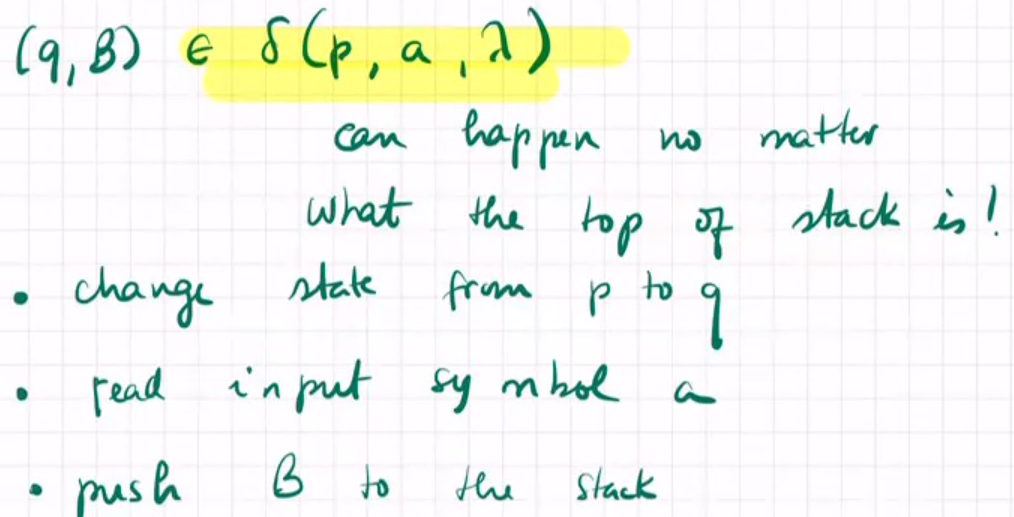 (q, B) ∈ δ(p, a, λ)
can happen no matter
what the top of stack is!
• change state from p to q
• read input symbol a
• push B to the stack